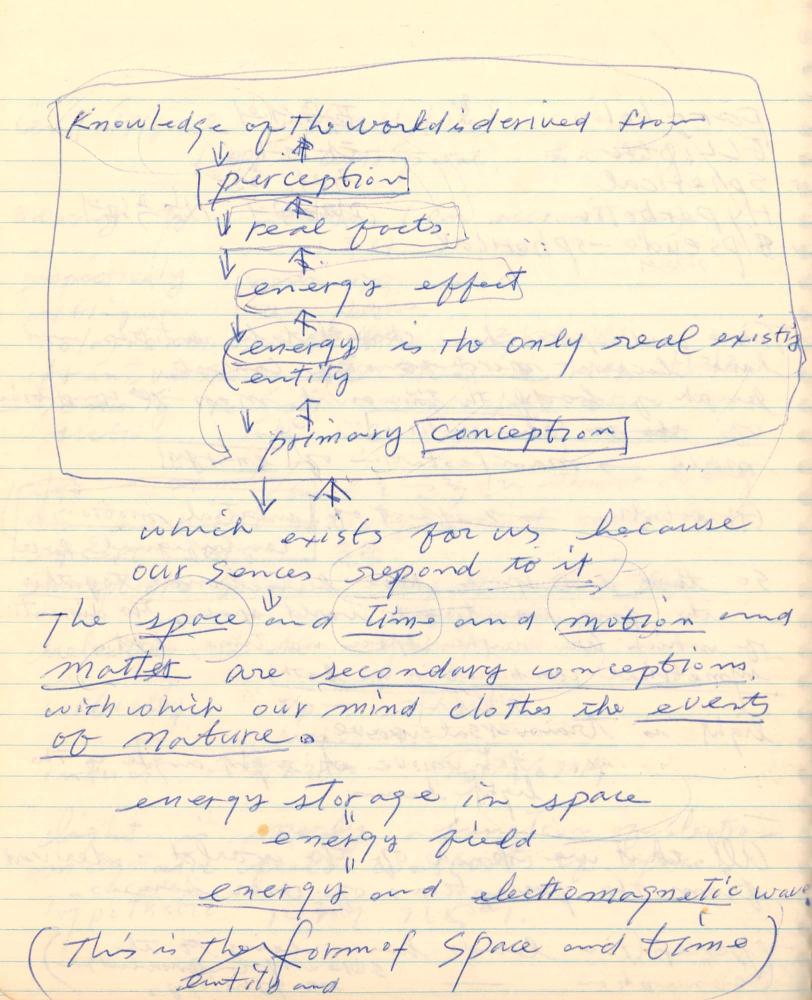 Knowledge of the world is derived from
⇓ ⇑
purception
⇓ ⇑
real facts.
⇓ ⇑
energy effect
⇓ ⇑
energy is the only real existig
entity
⇓ ⇑
primary conception
⇓ ⇑
which exists for us because
our sences repond to it.
⇓
The space and time and motion and
matter are secondary conceptions.
with which our mind clothes the events
of nature.
energy storage in space
"
energy field
"
energy and electromagnetic wave
(This is the form of space and time)
entity and